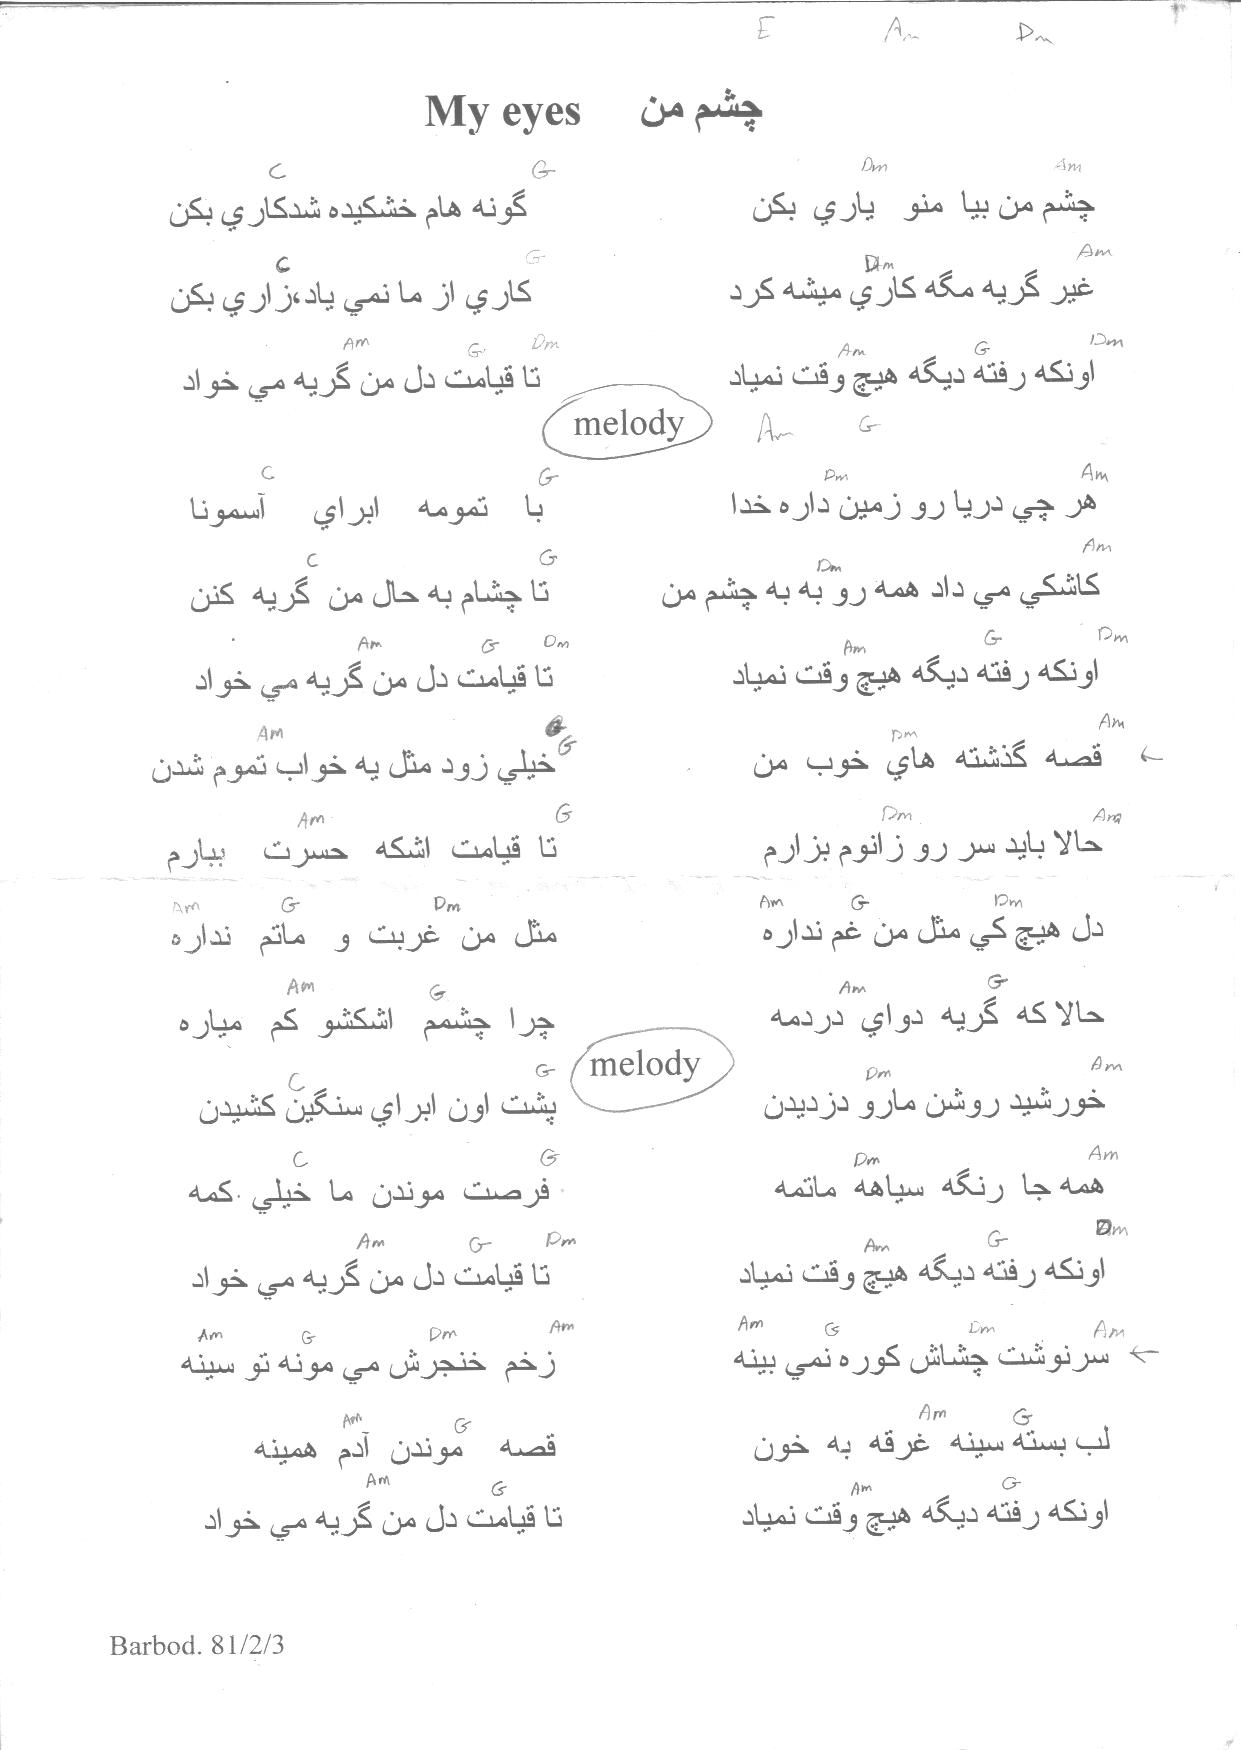 E Am Dm
چشم من My eyes
Am Dm G C
چشم من بيا منو ياري بكن گونه هام خشكيده شدكاري بكن
Am Dm G C
غير گريه مگه كاري ميشه كرد كاري از ما نمي ياد،زاري بكن
Dm G Am Dm G Am
اونكه رفته ديگه هيچ وقت نمياد تا قيامت دل من گريه مي خواد
melody Am G
Am Dm G C
هر چي دريا رو زمين داره خدا با تمومه ابراي آسمونا
Am Dm G C
كاشكي مي داد همه رو به به چشم من تا چشام به حال من گريه كنن
Dm G Am Dm G Am
اونكه رفته ديگه هيچ وقت نمياد تا قيامت دل من گريه مي خواد
Am Dm G Am
← قصه گذشته هاي خوب من خيلي زود مثل يه خواب تموم شدن
Am Dm G Am
حالا بايد سر رو زانوم بزارم تا قيامت اشكه حسرت ببارم
Dm G Am Dm G Am
دل هيچ كي مثل من غم نداره مثل من غربت و ماتم نداره
G Am G Am
حالا كه گريه دواي دردمه چرا چشمم اشكشو كم مياره
melody
Am Dm G C
خورشيد روشن مارو دزديدن پشت اون ابراي سنگين كشيدن
Am Dm G C
همه جا رنگه سياهه ماتمه فرصت موندن ما خيلي كمه
Dm G Am Dm G Am
اونكه رفته ديگه هيچ وقت نمياد تا قيامت دل من گريه مي خواد
Am Dm G Am Am Dm G Am
← سرنوشت چشاش كوره نمي بينه زخم خنجرش مي مونه تو سينه
G Am G Am
لب بسته سينه غرقه به خون قصه موندن آدم همينه
G Am G Am
اونكه رفته ديگه هيچ وقت نمياد تا قيامت دل من گريه مي خواد
Barbod. 81/2/3